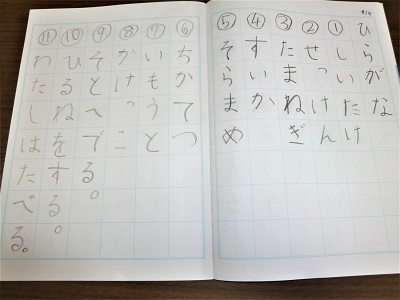 ひらがな
①しいたけ
②せっけん
③たまねぎ
④すいか
⑤そらまめ
⑥ちかてつ
⑦いもうと
⑧かけっこ
⑨そとへでる。
⑩ひるねをする。
⑪わたしはたべる。